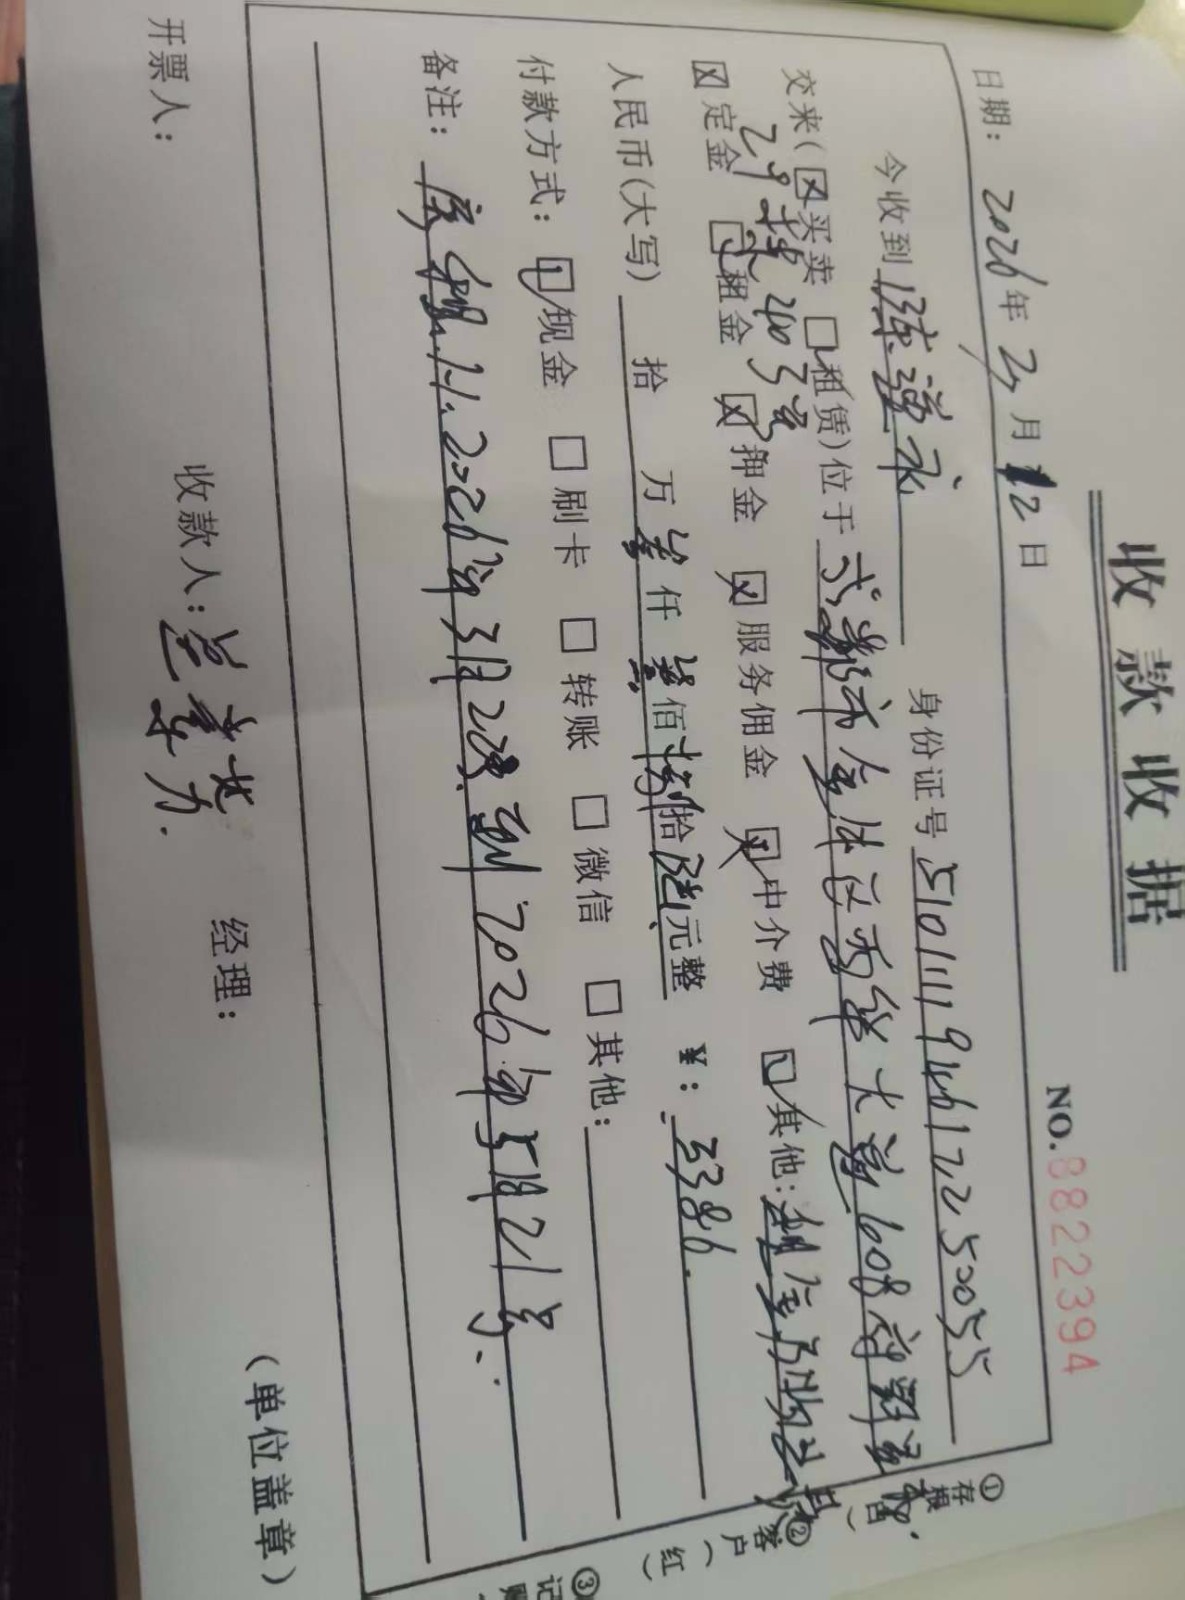 收款收据
NO.8822394
日期：2026年2月12日
今收到 身份证号 510111194612250055
交来（☒买卖 □租赁）位于 成都市金牛区西华大道608府
2栋 403号
☒定金 □租金 ☒押金 ☒服务佣金 ☒中介费 ☑其他：租金
人民币（大写） 拾 万叁仟叁佰捌拾陆元整 ¥：3386.
付款方式：☑现金 □刷卡 □转账 □微信 □其他：
备注：房租从2026年3月22号到2026年5月21号.
开票人： 收款人： 经理： （单位盖章）
①存根
②客户（红）
③记账